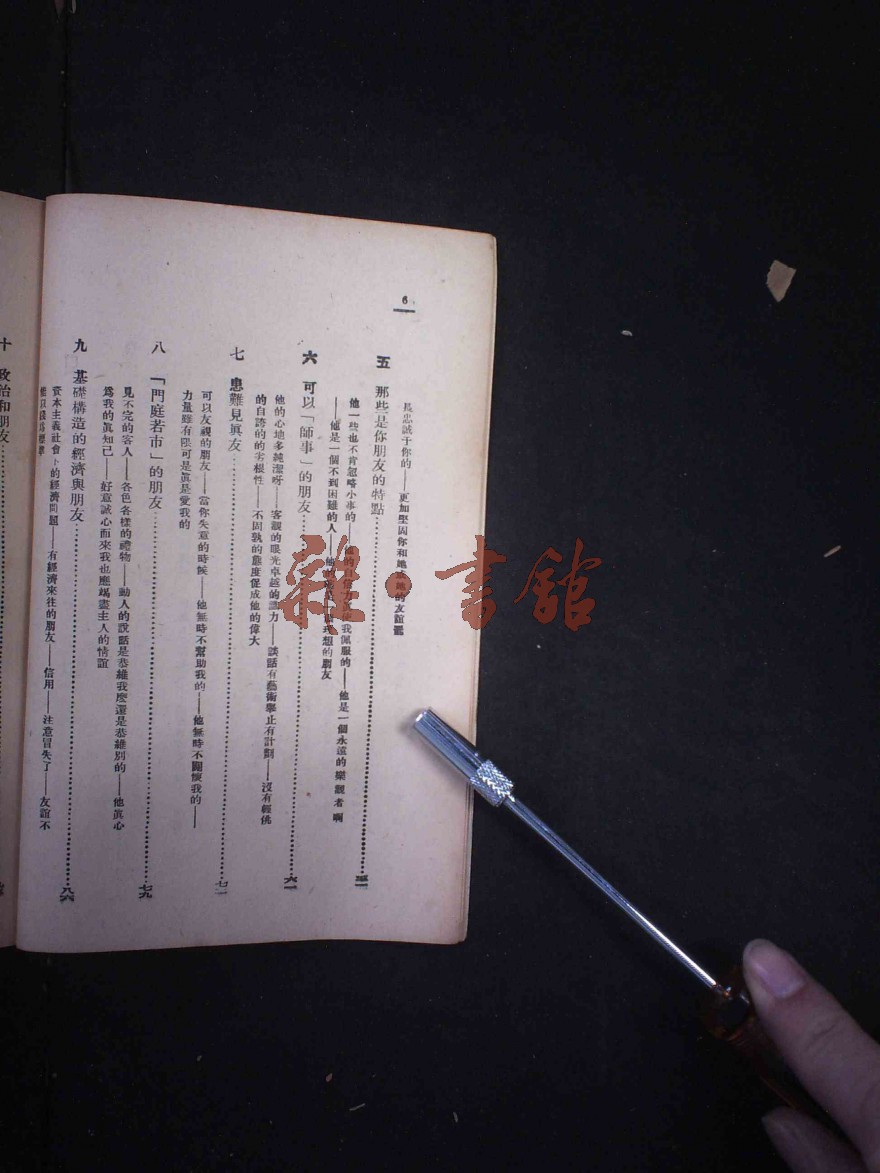 6
是忠誠于你的——更加堅固你和她或他的友誼罷
五 那些是你朋友的特點
他一些也不肯忽略小事的——使我佩服的——他是一個永遠的樂觀者啊
——他是一個不到困難的人——理想的朋友
六 可以「師事」的朋友 六一
他的心地多純潔呀——客觀的眼光卓越的識力——談話有藝術舉止有計劃——沒有輕佻
的自誇的的劣根性——不固執的態度促成他的偉大
七 患難見真友 七一
可以友視的朋友——當你失意的時候——他無時不幫助我的——他無時不關懷我的——
力量雖有限可是眞是愛我的
八 「門庭若市」的朋友 七九
見不完的客人——各色各樣的禮物——動人的說話是恭維我麼還是恭維別的——他眞心
爲我的眞知己——好意誠心而來我也應竭盡主人的情誼
九 基礎構造的經濟與朋友 八六
資本主義社會上的經濟問題——有經濟來往的朋友——信用——注意冒失了——友誼不
十 政治和朋友
雜·書館